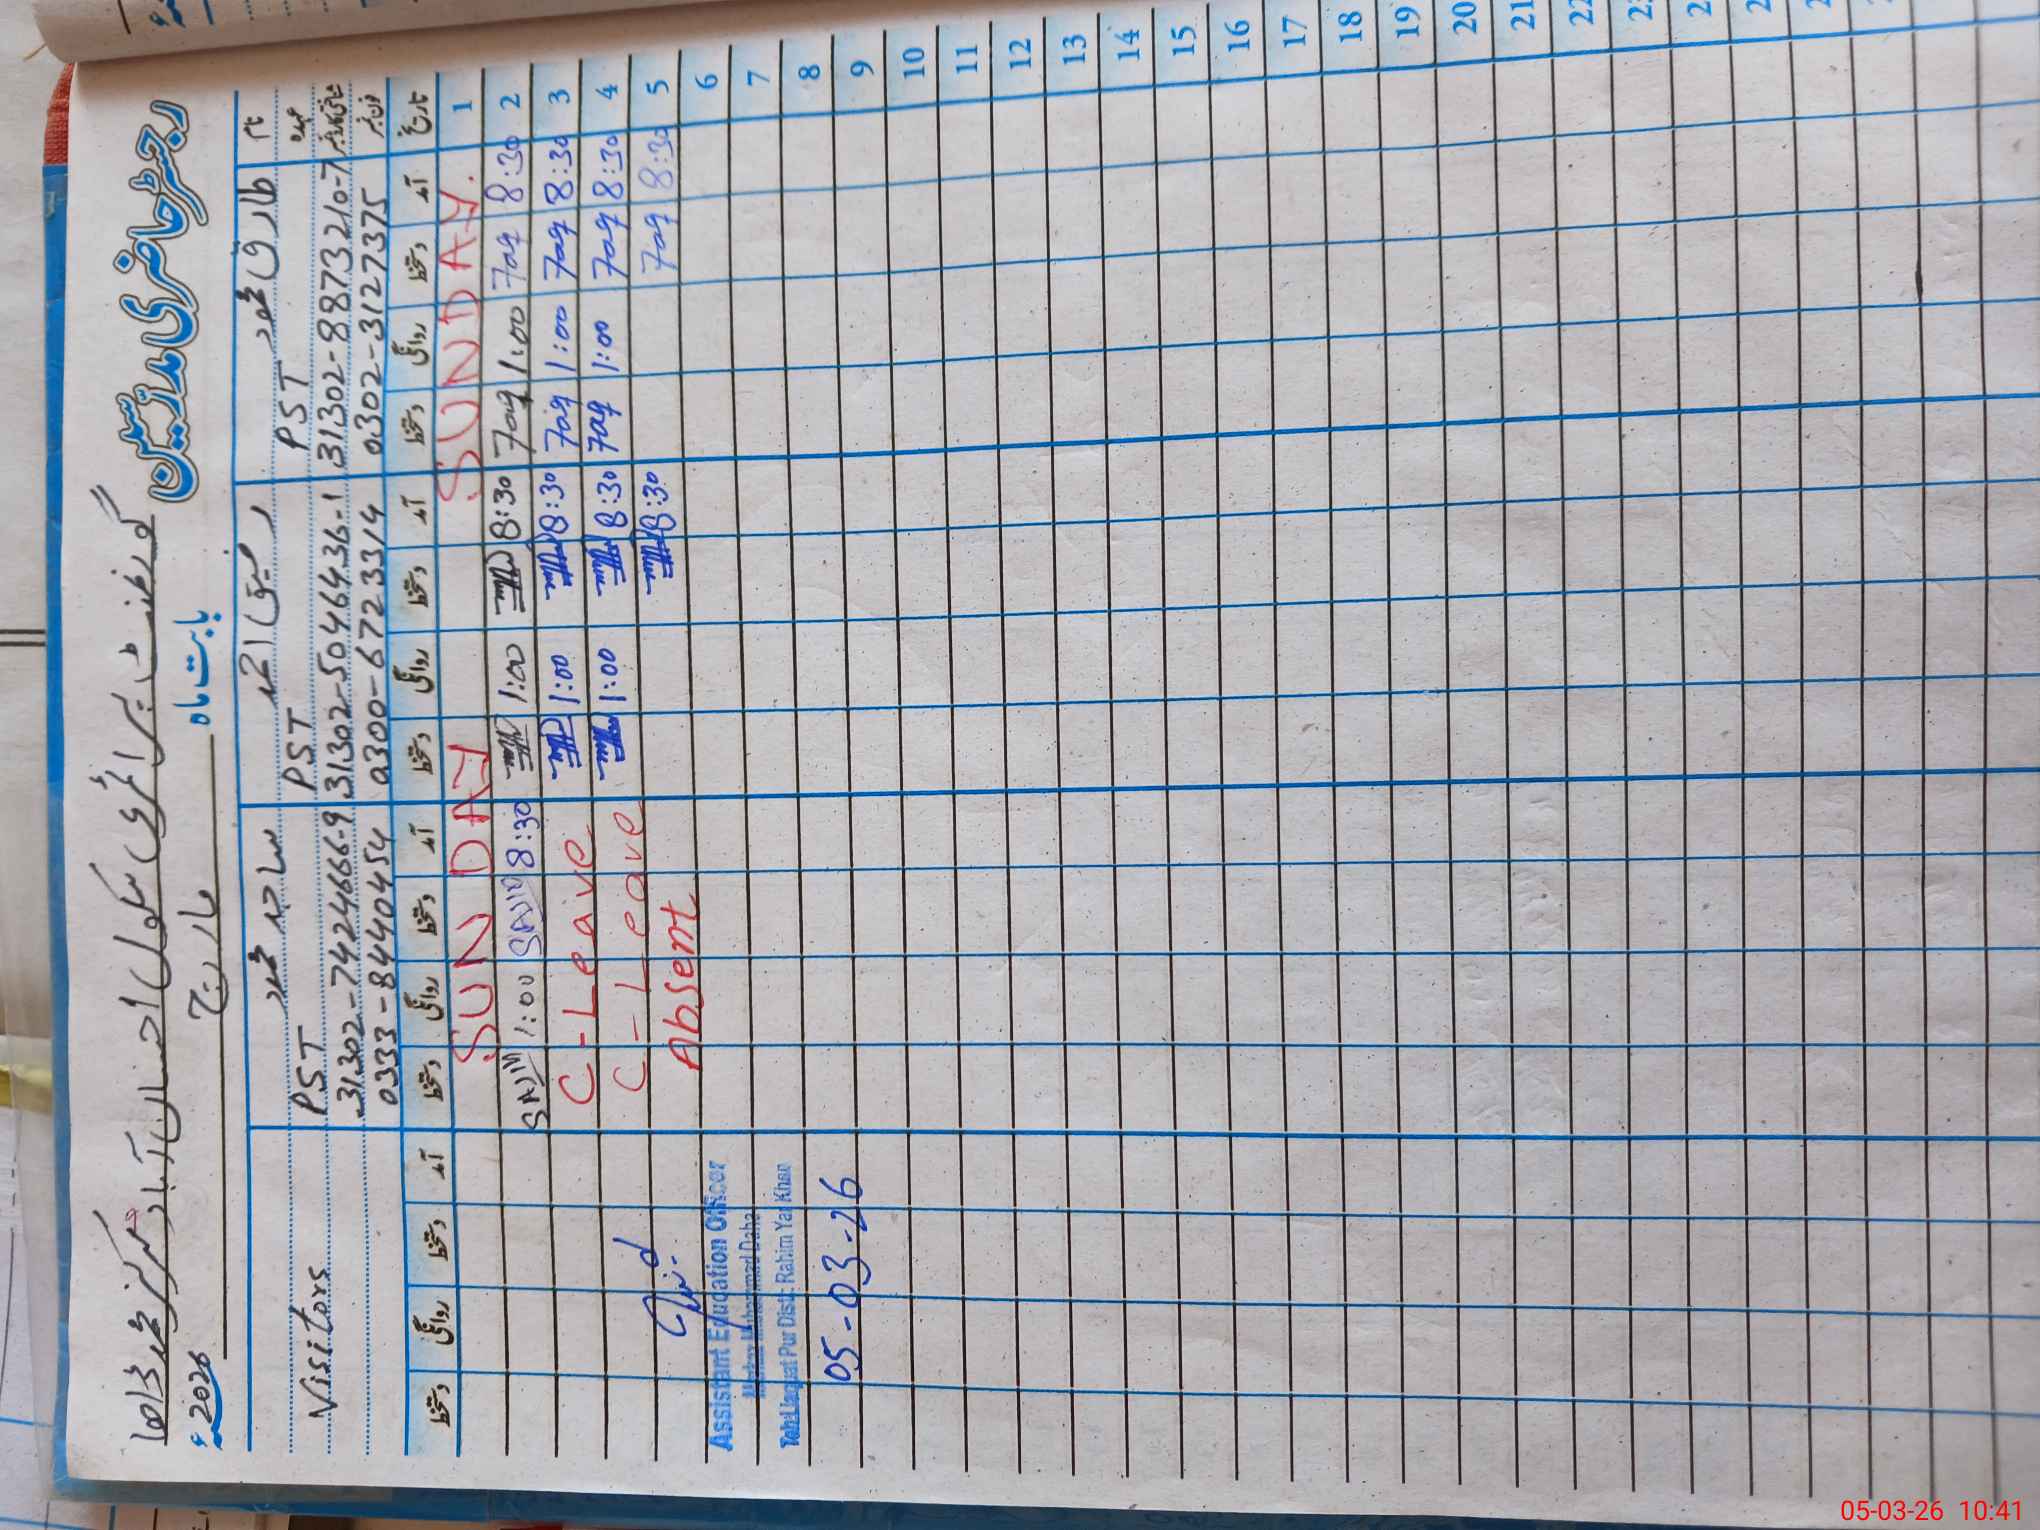 رجسٹر حاضری ملازمین
گورنمنٹ پرائمری سکول احسان آباد مرکز محمد ڈاھا
بابت ماہ مارچ 2026ء
نام طارق محمود رفیق احمد ساجد محمود
عہدہ PST PST PST Visitors
شناختی کارڈ نمبر 31302-8873210-7 31302-5046436-1 31302-7424666-9
فون نمبر 0302-3127375 0300-6723314 0333-8440454
تاریخ آمد دستخط روانگی دستخط آمد دستخط روانگی دستخط آمد دستخط روانگی دستخط آمد دستخط روانگی دستخط
1 SUNDAY. SUNDAY
2 8:30 Taq 1:00 Taq 8:30 1:00 8:30 SAJID 1:00
3 8:30 Taq 1:00 Taq 8:30 1:00 C-Leave
4 8:30 Taq 1:00 Taq 8:30 1:00 C-Leave
5 8:30 Taq 8:30 Absent
6
7
8
9
10
11
12
13
14
15
16
17
18
19
20
21
Assistant Education Officer
Markaz Muhammad Daha
Teh:Liaqat Pur Distt: Rahim Yar Khan
05-03-26
05-03-26 10:41